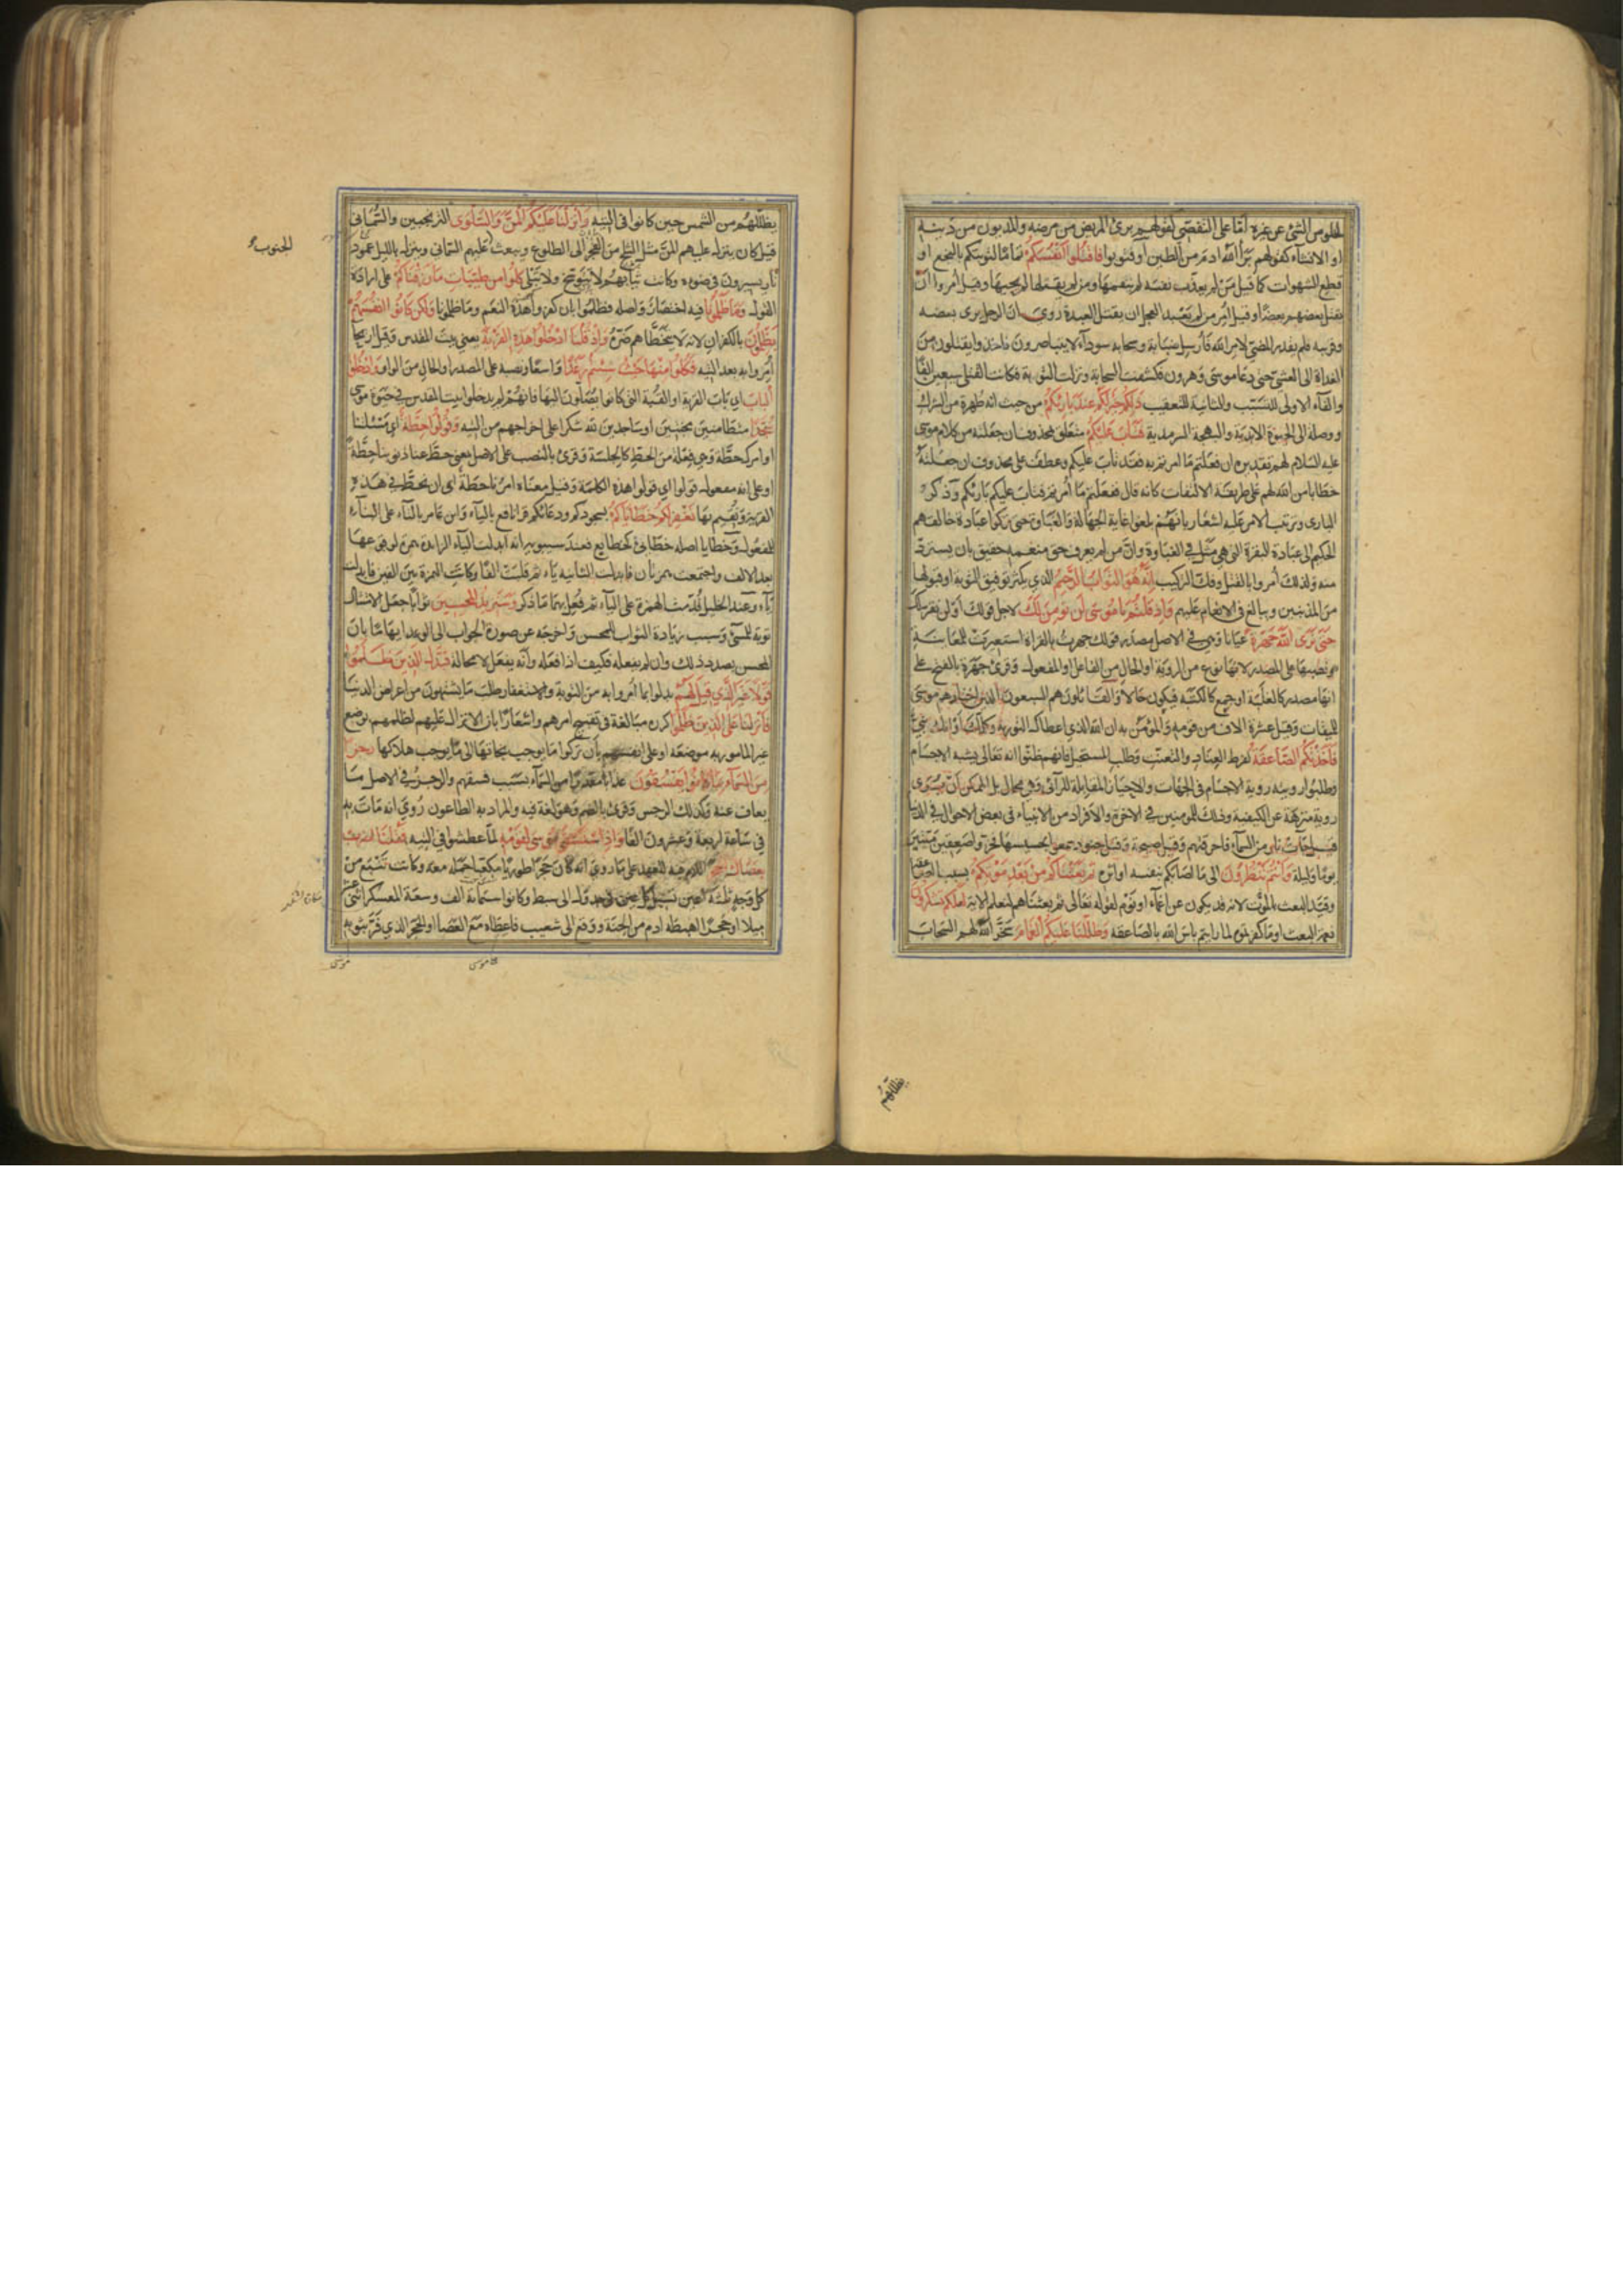 لخلوص الشئ عن غيره اما على التفصى كقولهم برئ المريض من مرضه والمديون من دينه
او الانشاء كقولهم برأ الله ادم من الطين او فتوبوا فاقتلوا انفسكم تماما لتوبتكم بالبخع او
قطع الشهوات كما قيل من لم يعذب نفسه لم ينعمها ومن لم يقتلها لم يحيها وقيل أمروا ان
يقتل بعضهم بعضا وقيل أمر من لم يعبد العجل ان يقتل العبدة روى ان الرجل يرى بعضه
وقريبه فلم يقدر المضى لامر الله فأرسل ضبابة وسحابه سوداء لا يتباصرون فاخذوا يقتلون من
الغداة الى العشى حتى دعا موسى وهرون فكشفت السحابة ونزلت التوبة فكانت القتلى سبعين الفا
والفاء الاولى للتسبب والثانية للتعقيب ذلكم خير لكم عند بارئكم من حيث انه طهرة من الشرك
ووصلة الى الحيوة الابدية والبهجة السرمدية فتاب عليكم متعلق بمحذوف ان جعلته من كلام موسى
عليه السلام لهم تقديره ان فعلتم ما امرتم به فقد تاب عليكم وعطف على محذوف ان جعلته
خطابا من الله لهم على طريقة الالتفات كانه قال ففعلتم ما أمرتم فتاب عليكم بارئكم وذكر
البارى وترتب الامر عليه اشعار بانهم بلغوا غاية الجهالة والغباوة حتى تركوا عبادة خالقهم
الحكيم الى عبادة البقرة التى هى مثل في الغباوة وان من لم يعرف حق منعمه حقيق بان يسترد
منه ولذلك أمروا بالقتل وفك التركيب انه هو التواب الرحيم الذي يكثر توفيق التوبة او قبولها
من المذنبين ويبالغ في الانعام عليهم واذ قلتم يا موسى لن نؤمن لك لاجل قولك او لن نقر لك
حتى نرى الله جهرة عيانا وهى في الاصل مصدر قولك جهرت بالقراة استعيرت للمعاينة
ونصبها على المصدر لانها نوع من الروية او الحال من الفاعل او المفعول وقرئ جهرة بالفتح على
انها مصدر كالغلبة او جمع كالكتبة فيكون حالا والقائلون هم السبعون الذين اختارهم موسى
للميقات وقيل عشرة الاف من قومه والمؤمن به ان الله الذي اعطاك التورية وكلمك او انك نبي
فاخذتكم الصاعقة لفرط العناد والتعنت وطلب المستحيل فانهم ظنوا انه تعالى يشبه الاجسام
فطلبوا رويته روية الاجسام في الجهات والاحياز المقابلة للرآئى وهى محال بل الممكن ان يرى
روية منزهة عن الكيفية وذلك للمومنين في الاخرة والافراد من الانبياء في بعض الاحوال في الدنيا
قيل جاءت نار من السماء فاحرقتهم وقيل صيحة وقيل جنود سمعوا بحسيسها فخروا صعقين ميتين
يوما وليلة وانتم تنظرون الى ما اصابكم بنفسه او اثره ثم بعثناكم من بعد موتكم بسبب الصاعقة
وقيد البعث بالموت لانه قد يكون عن اغماء او نوم لقوله تعالى ثم بعثناهم لنعلم الاية لعلكم تشكرون
نعمة البعث او ما كفرتموه لما رايتم باس الله بالصاعقه وظللنا عليكم الغمام سخر الله لهم السحاب
يظللهم
يظللهم من الشمس حين كانوا فى التيه وانزلنا عليكم المن والسلوى الترنجبين والسمانى
قيل كان ينزل عليهم المن مثل الثلج من الفجر الى الطلوع ويبعث عليهم السمانى وينزل بالليل عمود
الجنوب
نار يسيرون في ضوءه وكانت ثيابهم لا تتوسخ ولا تبلى كلوا من طيبات ما رزقناكم على ارادة
القول وما ظلمونا فيه اختصار واصله فظلموا بان كفروا هذه النعم وما ظلمونا ولكن كانوا انفسهم
يظلمون بالكفران لانه لا يتخطاهم ضرره واذ قلنا ادخلوا هذه القرية يعني بيت المقدس وقيل اريحا
أمروا به بعد التيه فكلوا منها حيث شئتم رغدا واسعا ونصبه على المصدر او الحال من الواو وادخلوا
الباب اى باب القرية او القبة التى كانوا يصلون اليها فانهم لم يدخلوا بيت المقدس في حيوة موسى
سجدا متطامنين مخبتين او ساجدين لله شكرا على اخراجهم من التيه وقولوا حطة اى مسئلتنا
او امرك حطة وهى فعلة من الحط كالجلسة وقرئ بالنصب على الاصل بمعنى حط عنا ذنوبنا حطة
او على انه مفعول قولوا اي قولوا هذه الكلمة وقيل معناه امرنا حطة أى ان نحط في هذه
القرية ونقيم بها نغفر لكم خطاياكم بسجودكم ودعائكم قرا نافع بالياء وابن عامر بالتاء على البناء
للمفعول وخطايا اصله خطائئ كخطايع فعند سيبويه انه ابدلت الياء الزايدة همزة لوقوعها
بعد الالف واجتمعت همزتان فابدلت الثانية ياء ثم قلبت الفا وكانت الهمزة بين الفين فابدلت
ياء وعند الخليل قدمت الهمزة على الياء ثم فعل بهما ما ذكر وسنزيد المحسنين ثوابا جعل الامتثال
توبة للمسئ وسبب زيادة الثواب للمحسن واخرجه عن صورة الجواب الى الوعد ايهاما بان
المحسن بصدد ذلك وان لم يفعله فكيف اذا فعله وانه يفعل لا محالة فبدل الذين ظلموا
قولا غير الذي قيل لهم بدلوا بما أمروا به من التوبة والاستغفار وطلب ما يشتهون من اعراض الدنيا
فانزلنا على الذين ظلموا كرره مبالغة في تقبيح امرهم واشعارا بان الانزال عليهم لظلمهم بوضع
غير المامور به موضعه او على انفسهم بان تركوا ما يوجب نجاتها الى ما يوجب هلاكها رجزا
من السماء بما كانوا يفسقون عذابا مقدرا من السماء بسبب فسقهم والرجز في الاصل ما
يعاف عنه وكذلك الرجس وقرئ بالضم وهو لغة فيه والمراد به الطاعون روى انه مات به
في ساعة اربعة وعشرون الفا واذ استسقى موسى لقومه لما عطشوا في التيه فقلنا اضرب
بعصاك الحجر اللام فيه للعهد على ما روى انه كان حجرا طوريا مكعبا حمله معه وكانت تنبع من
كل وجه ثلثة اعين تسيل كل عين في جدول الى سبط وكانوا ستمائة الف وسعة المعسكر اثنى عشر
ميلا او حجرا اهبطه ادم من الجنة ووقع الى شعيب فاعطاه مع العصا او الحجر الذي فر بثوبه
موسى